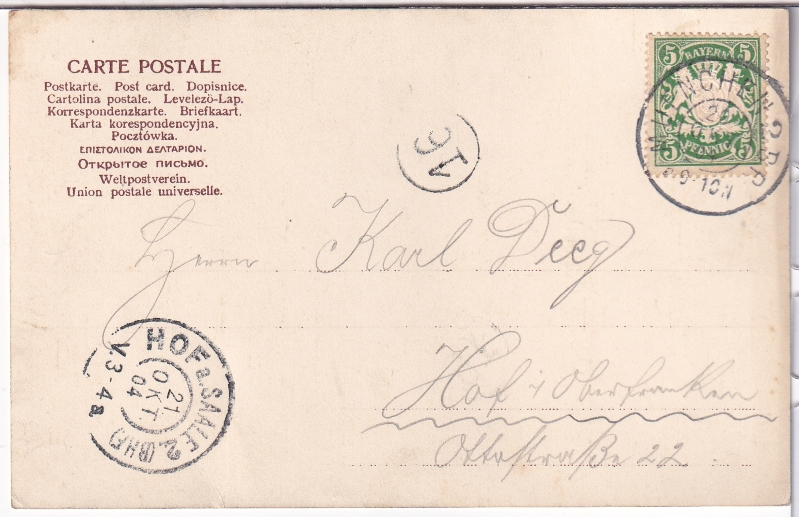 CARTE POSTALE
Postkarte. Post card. Dopisnice.
Cartolina postale. Levelező-Lap.
Korrespondenzkarte. Briefkaart.
Karta korespondencyjna.
Pocztówka.
ΕΠΙΣΤΟΛΙΚΟΝ ΔΕΛΤΑΡΙΟΝ.
Открытое письмо.
Weltpostverein.
Union postale universelle.
5 BAYERN 5
5 PFENNIG 5
MÜNCHEN
9-10
Herrn Karl Deeg
Hof i Oberfranken
Ottostraße 22.
HOF a. SAALE 2. (BHF)
21
OKT.
04
V.3-4a